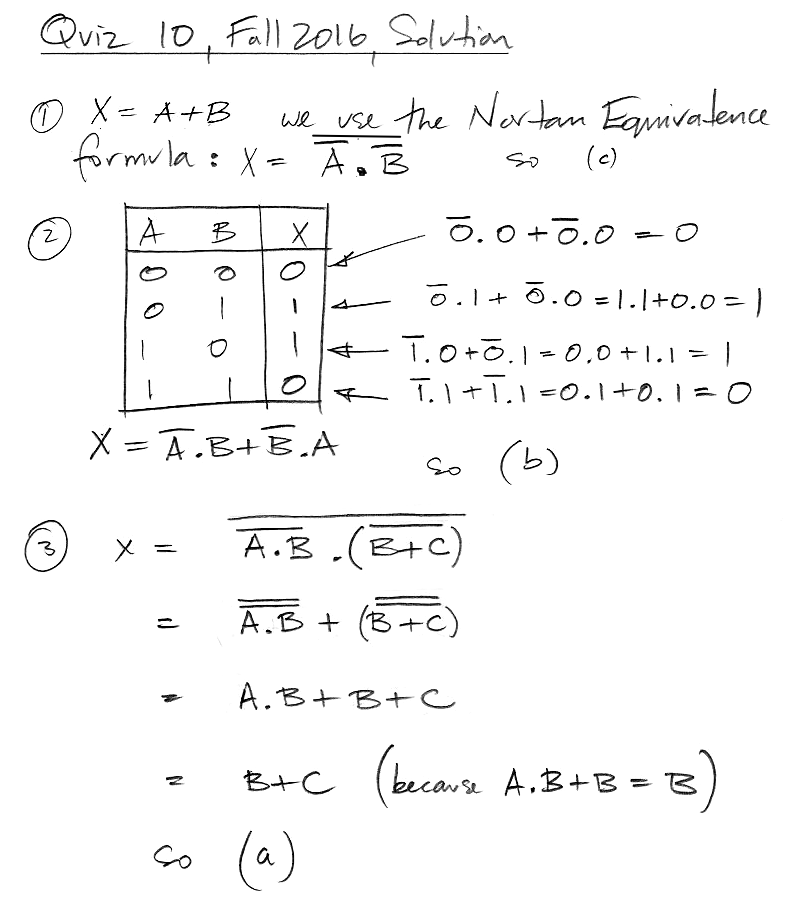 Quiz 10, Fall 2016, Solution
① X = A+B we use the Nortan Equivalence
formula : X = A̅͞ . B̅͞ so (c)
②
A B X
0 0 0 0̅.0+0̅.0 = 0
0 1 1 0̅.1+ 0̅.0 = 1.1+0.0 = 1
1 0 1 1̅.0+0̅.1 = 0.0+1.1 = 1
1 1 0 1̅.1+1̅.1 = 0.1+0.1 = 0
X = A̅.B+B̅.A
so (b)
③ X = \overline{\overline{A.B} . (\overline{B+C})}
= \overline{\overline{A.B}} + (\overline{\overline{B+C}})
= A.B+B+C
= B+C (because A.B+B = B)
so (a)